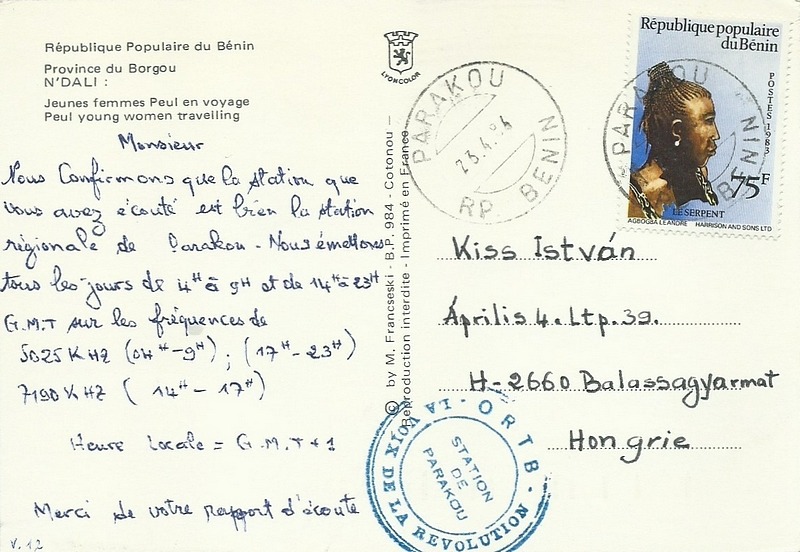 République Populaire du Bénin
Province du Borgou
N'DALI :
Jeunes femmes Peul en voyage
Peul young women travelling
Monsieur
Nous Confirmons que la station que
vous avez écouté est bien la station
régionale de Parakou - Nous émettons
tous les jours de 4H à 9H et de 14H à 23H
G.M.T sur les fréquences de
5025 KHZ (04H-9H) ; (17H-23H)
7190 KHZ ( 14H - 17H)
Heure Locale = G.M.T + 1
Merci de votre rapport d'écoute
V. 12
LYONCOLOR
© by M. Francseski - B.P. 984 - Cotonou -
Reproduction interdite - Imprimé en France
PARAKOU
23.4.84
RP. BENIN
République populaire
du Bénin
POSTES 1983
75F
LE SERPENT
AGBOGBA LEANDRE HARRISON AND SONS LTD
PARAKOU
BENIN
Kiss István
Április 4. Ltp. 39.
H-2660 Balassagyarmat
Hongrie
ORTB
LA VOIX DE LA REVOLUTION
STATION
DE
PARAKOU